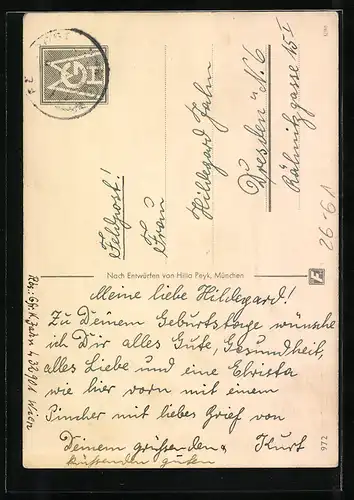 Feldpost!
Frau
Hildegard Jahn
Dresden N. 6
Rähnitzgasse 15 I
26-61
Nach Entwürfen von Hilla Peyk, München
Meine liebe Hildegard!
Zu Deinem Geburtstage wünsche
ich Dir alles Gute, Gesundheit,
alles Liebe und eine Christa
wie hier vorn mit einem
Pincher mit liebes Grief von
Deinem grüssenden Kurt
küssenden guten
972
Jahn